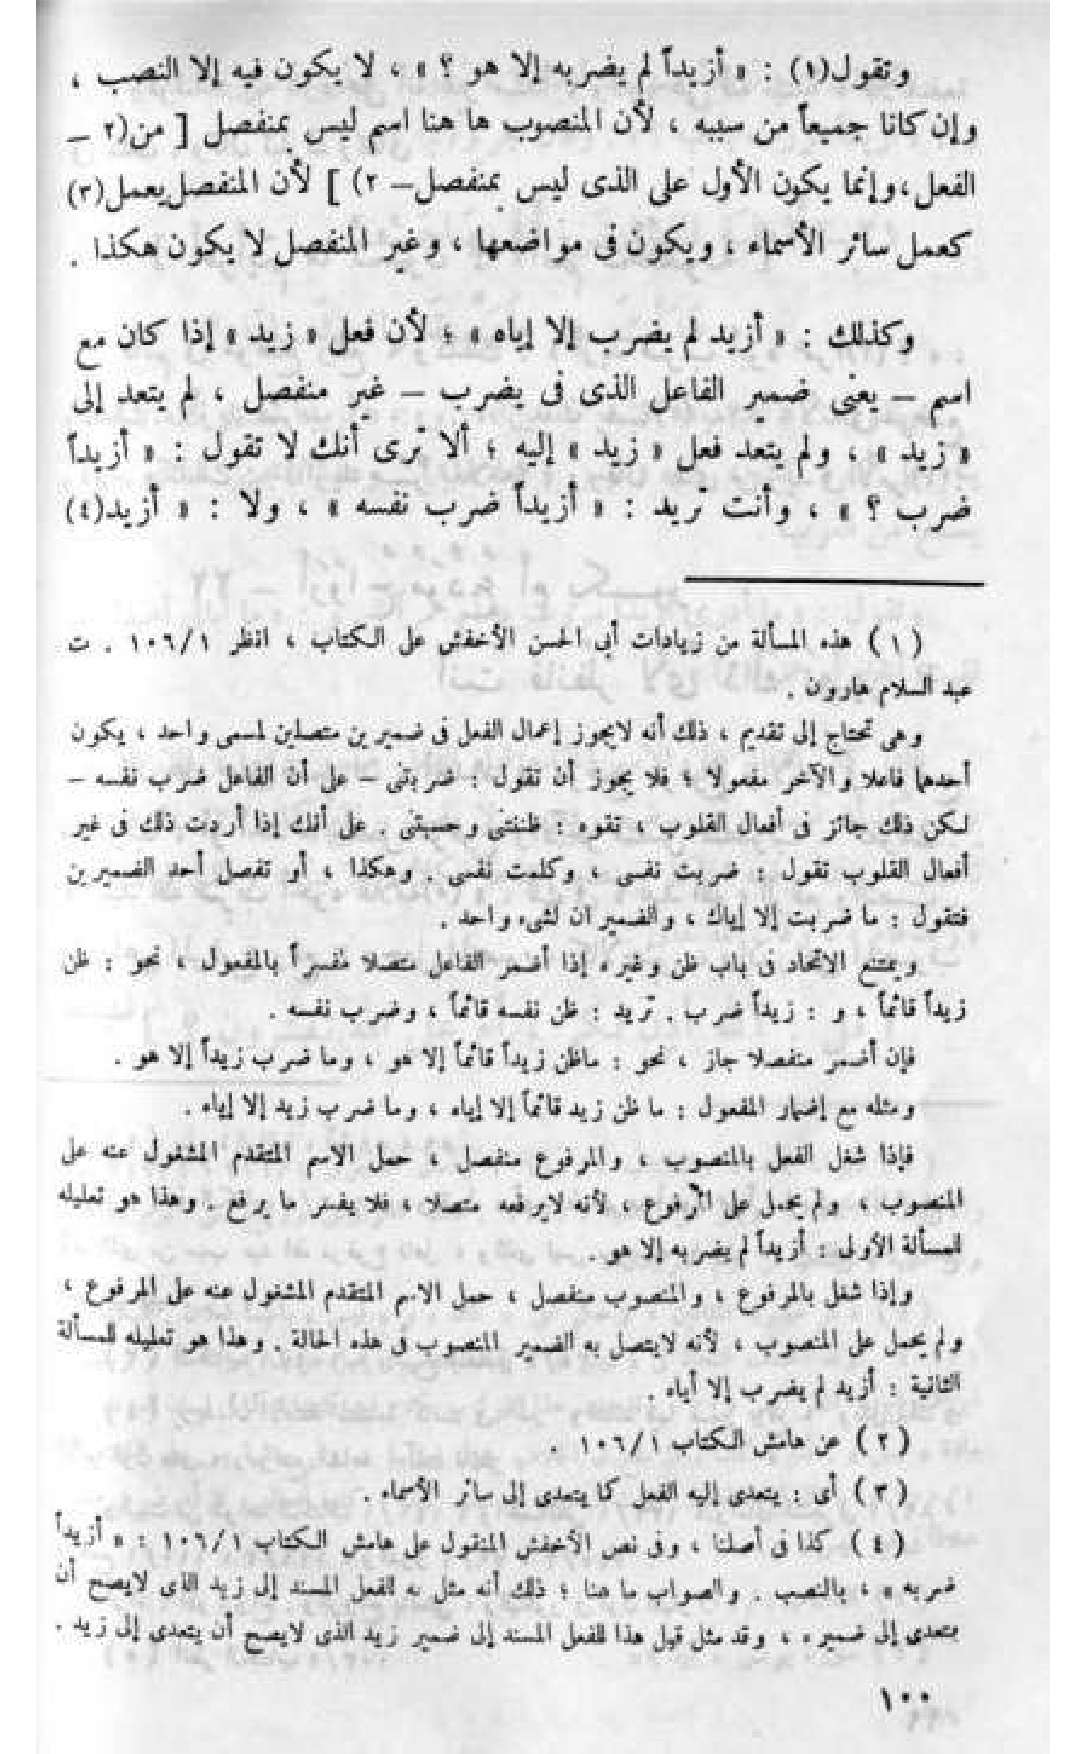 وتقول(١) : « أزيداً لم يضربه إلا هو ؟ » ، لا يكون فيه إلا النصب ،
وإن كانا جميعاً من سببه ، لأن المنصوب ها هنا اسم ليس بمنفصل [ من(٢ –
الفعل ، وإنما يكون الأول على الذى ليس بمنفصل – ٢) ] لأن المنفصل يعمل(٣)
كعمل سائر الأسماء ، ويكون فى مواضعها ، وغير المنفصل لا يكون هكذا .
وكذلك : « أزيد لم يضرب إلا إياه » ؛ لأن فعل « زيد » إذا كان مع
اسم – يعنى ضمير الفاعل الذى فى يضرب – غير منفصل ، لم يتعد إلى
« زيد » ، ولم يتعد فعل « زيد » إليه ؛ ألا ترى أنك لا تقول : « أزيداً
ضرب ؟ » ، وأنت تريد : « أزيداً ضرب نفسه » ، ولا : « أزيد(٤)
( ١ ) هذه المسألة من زيادات أبى الحسن الأخفش على الكتاب ، انظر ١٠٦/١ . ت
عبد السلام هارون .
وهى تحتاج إلى تقديم ، ذلك أنه لايجوز إعمال الفعل فى ضميرين متصلين لمسمى واحد ، يكون
أحدهما فاعلا والآخر مفعولا ؛ فلا يجوز أن تقول : ضربتنى – على أن الفاعل ضرب نفسه –
لكن ذلك جائز فى أفعال القلوب ، تقوه : ظننتنى وحسبتنى . على أنك إذا أردت ذلك فى غير
أفعال القلوب تقول : ضربت نفسى ، وكلمت نفسى . وهكذا ، أو تفصل أحد الضميرين
فتقول : ما ضربت إلا إياك ، والضميران لشىء واحد .
ويمتنع الاتحاد فى باب ظن وغيره إذا أضمر الفاعل متصلا مفسراً بالمفعول ، نحو : ظن
زيداً قائماً ، و : زيداً ضرب . تريد : ظن نفسه قائماً ، وضرب نفسه .
فإن أضمر منفصلا جاز ، نحو : ماظن زيداً قائماً إلا هو ، وما ضرب زيداً إلا هو .
ومثله مع إضمار المفعول : ما ظن زيد قائماً إلا إياه ، وما ضرب زيد إلا إياه .
فإذا شغل الفعل بالمنصوب ، والمرفوع منفصل ، حمل الاسم المتقدم المشغول عنه على
المنصوب ، ولم يحمل على المرفوع ، لأنه لايرفعه متصلا ، فلا يفسر ما يرفع . وهذا هو تعليله
للمسألة الأولى : أزيداً لم يضربه إلا هو .
وإذا شغل بالمرفوع ، والمنصوب منفصل ، حمل الاسم المتقدم المشغول عنه على المرفوع ،
ولم يحمل على المنصوب ، لأنه لايتصل به الضمير المنصوب فى هذه الحالة . وهذا هو تعليله للمسألة
الثانية : أزيد لم يضرب إلا أياه .
( ٢ ) عن هامش الكتاب ١٠٦/١ .
( ٣ ) أى : يتعدى إليه الفعل كما يتعدى إلى سائر الأسماء .
( ٤ ) كذا فى أصلنا ، وفى نص الأخفش المنقول على هامش الكتاب ١٠٦/١ : « أزيداً
ضربه » ، بالنصب . والصواب ما هنا ؛ ذلك أنه مثل به للفعل المسند إلى زيد الذى لايصح أن
يتعدى إلى ضميره ، وقد مثل قبل هذا للفعل المسند إلى ضمير زيد الذى لايصح أن يتعدى إلى زيد .
١٠٠